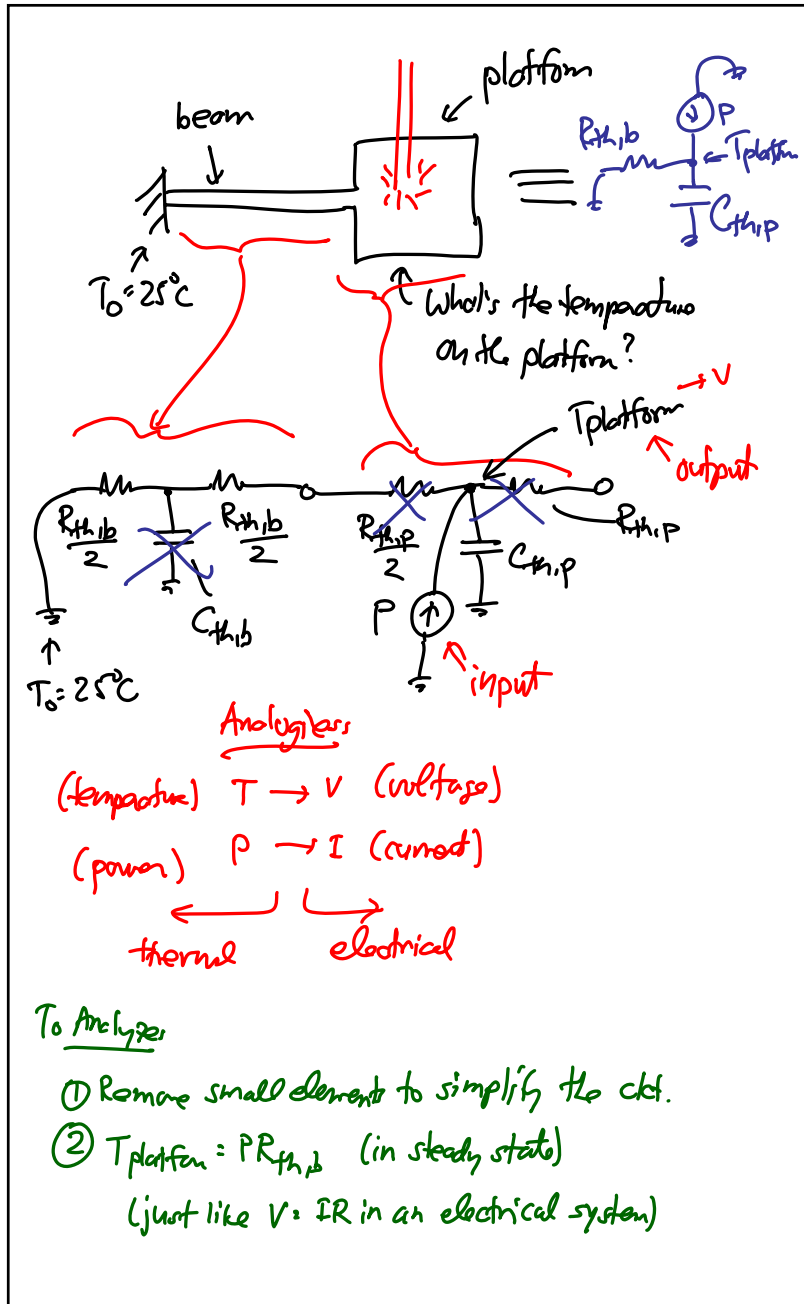 platform
beam
P
R_th,b
Tplatfm
C_th,p
T₀ = 25°C
What's the temperature
on the platform?
Tplatform → V
output
R_th,b/2
R_th,b/2
R_th,p/2
R_th,p
C_th,p
C_th,b
P
input
T₀ = 25°C
Analogiess
(temperature) T → V (voltage)
(power) P → I (current)
thermal electrical
To Analyze
① Remove small elements to simplify the ckt.
② Tplatfom = PR_th,b (in steady state)
(just like V = IR in an electrical system)